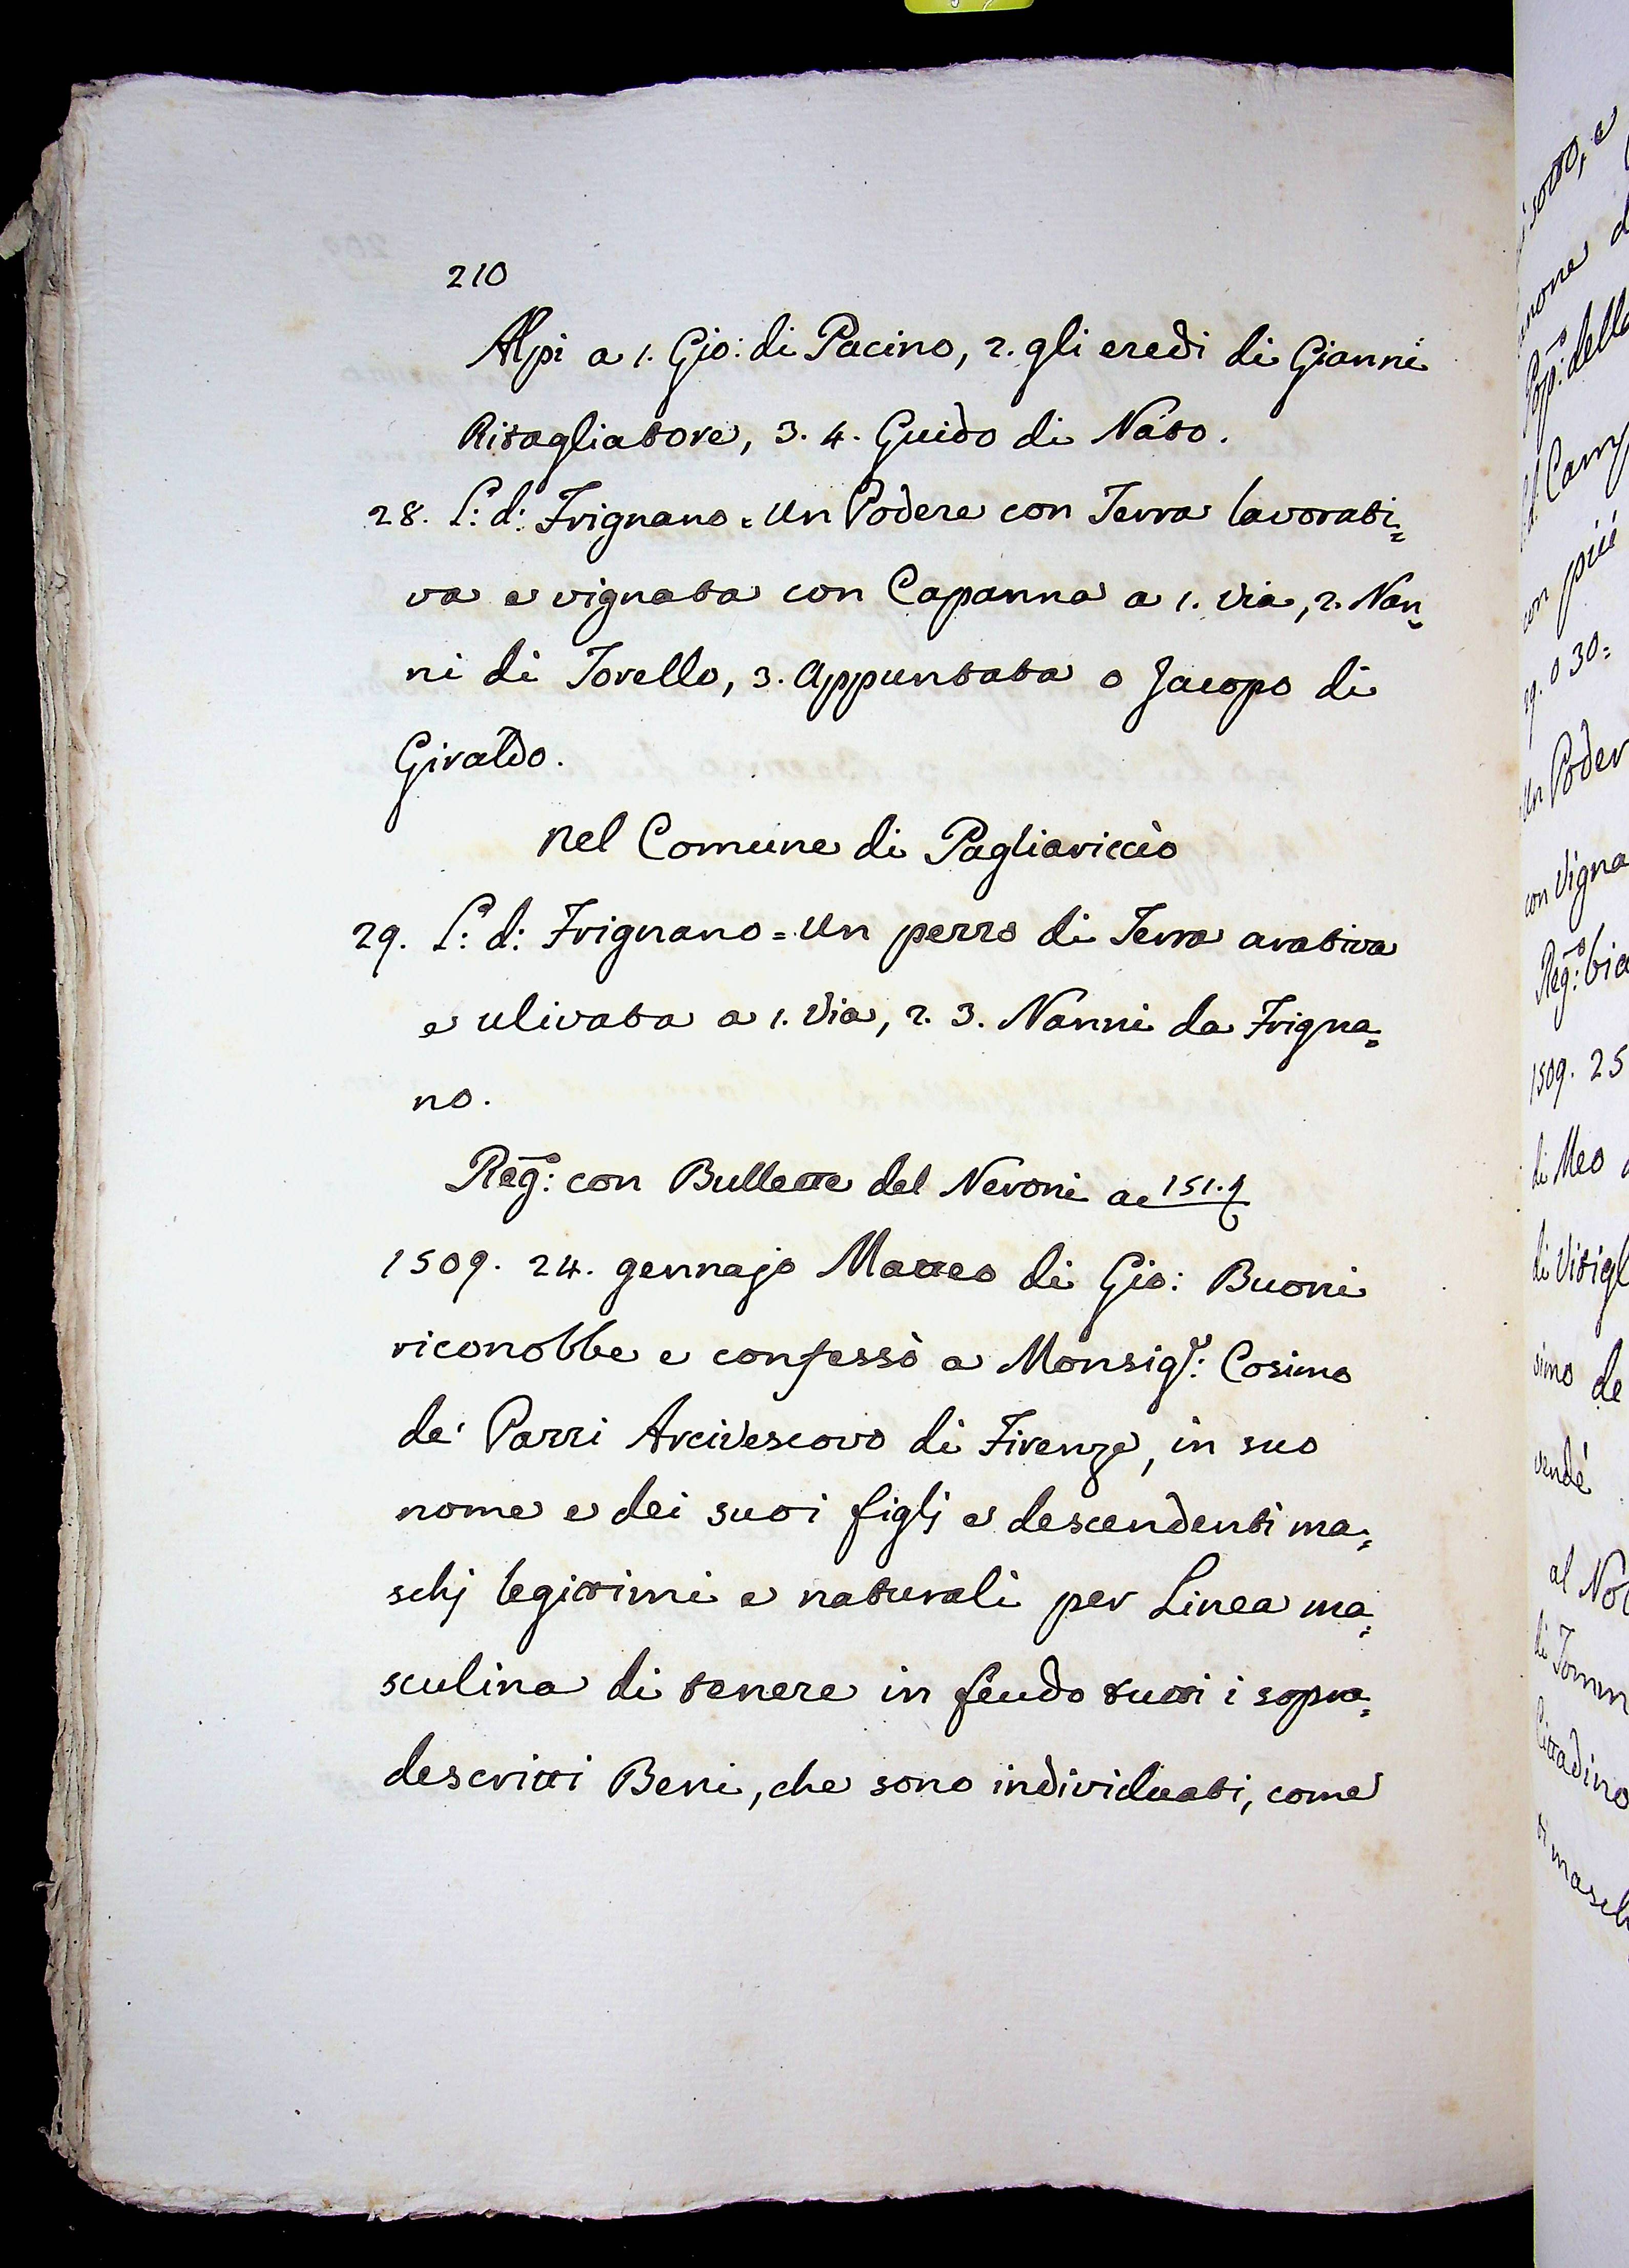 210
Alpi a 1. Gio: di Pacino, 2. gli eredi di Gianni
Ritagliatore, 3. 4. Guido di Nato.
28. L: d: Frignano = Un Podere con Terra lavorati=
va e vignata con Capanna a 1. Via, 2. Nan=
ni di Torello, 3. Appuntata o Jacopo di
Giraldo.
Nel Comune di Pagliariccio
29. L: d: Frignano = Un pezzo di Terra arativa
e ulivata a 1. Via, 2. 3. Nanni da Frigna=
no.
Reg:o con Bullette del Neroni a c 151.
1509. 24. gennajo Matteo di Gio: Buoni
riconobbe e confessò a Monsig.r: Cosimo
de' Pazzi Arcivescovo di Firenze, in suo
nome e dei suoi figlj e descendenti ma=
schj legittimi e naturali per Linea ma=
sculina di tenere in feudo tutti i sopra=
descritti Beni, che sono individuati, come